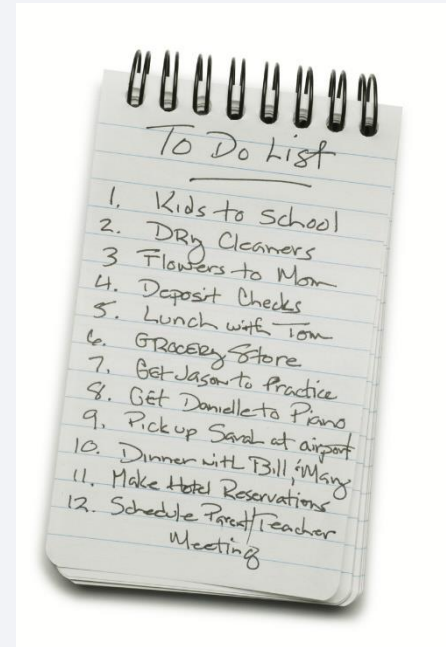 To Do List
1. Kids to School
2. DRy Cleaners
3 Flowers to Mom
4. Deposit Checks
5. Lunch with Tom
6. GROCERy Store
7. Get Jason to Practice
8. GEt Danielle to Piano
9. Pick up Sarah at airport
10. Dinner with Bill & Mary
11. Make Hotel Reservations
12. Schedule Parent/Teacher
Meeting